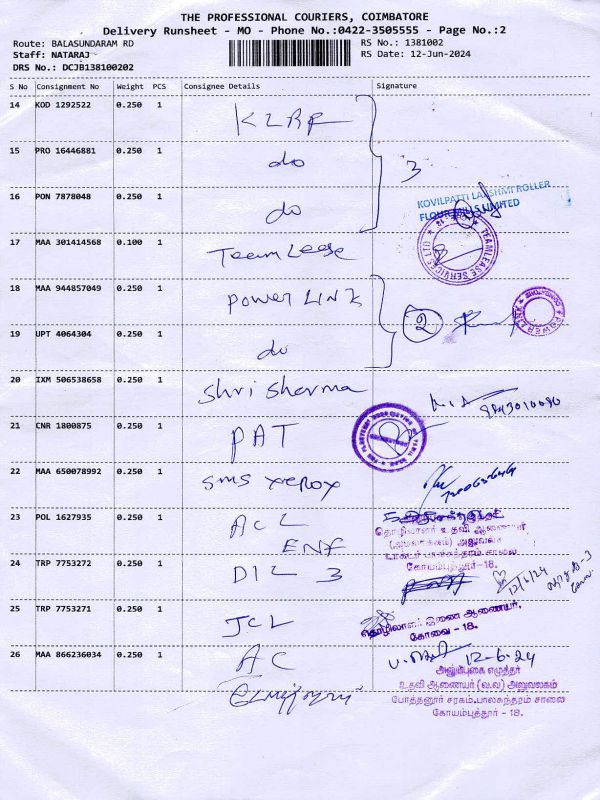 THE PROFESSIONAL COURIERS, COIMBATORE
Delivery Runsheet - MO - Phone No.:0422-3505555 - Page No.:2
Route: BALASUNDARAM RD
RS No.: 1381002
Staff: NATARAJ
RS Date: 12-Jun-2024
DRS No.: DCJB138100202
S No Consignment No Weight PCS Consignee Details Signature
14 KOD 1292522 0.250 1 KLRF
15 PRO 16446881 0.250 1 do
3
16 PON 7878048 0.250 1 do
KOVILPATTI LAKSHMI ROLLER
FLOUR MILLS LIMITED
17 MAA 301414568 0.100 1 TeamLease
TEAMLEASE SERVICES LTD
18 MAA 944857049 0.250 1 POWER LINK
2
POWER LINK
19 UPT 4064304 0.250 1 do
20 IXM 506538658 0.250 1 Shri Sharma
21 CNR 1800875 0.250 1 PAT
22 MAA 650078992 0.250 1 SMS xerox
23 POL 1627935 0.250 1 ACL
ENF
தொழிலாளர் உதவி ஆணையர்
(அமலாக்கம்) அலுவலகம்
டாக்டர் பாலசுந்தரம் சாலை
கோயம்புத்தூர்-18.
24 TRP 7753272 0.250 1 DIL 3
12/6/24
25 TRP 7753271 0.250 1 JCL
தொழிலாளர் இணை ஆணையர்,
கோவை - 18.
26 MAA 866236034 0.250 1 AC
12-6-24
உதவி ஆணையர் (வ.வ) அலுவலகம்
போத்தனூர் சரகம்.பாலசுந்தரம் சாலை
கோயம்புத்தூர் - 18.